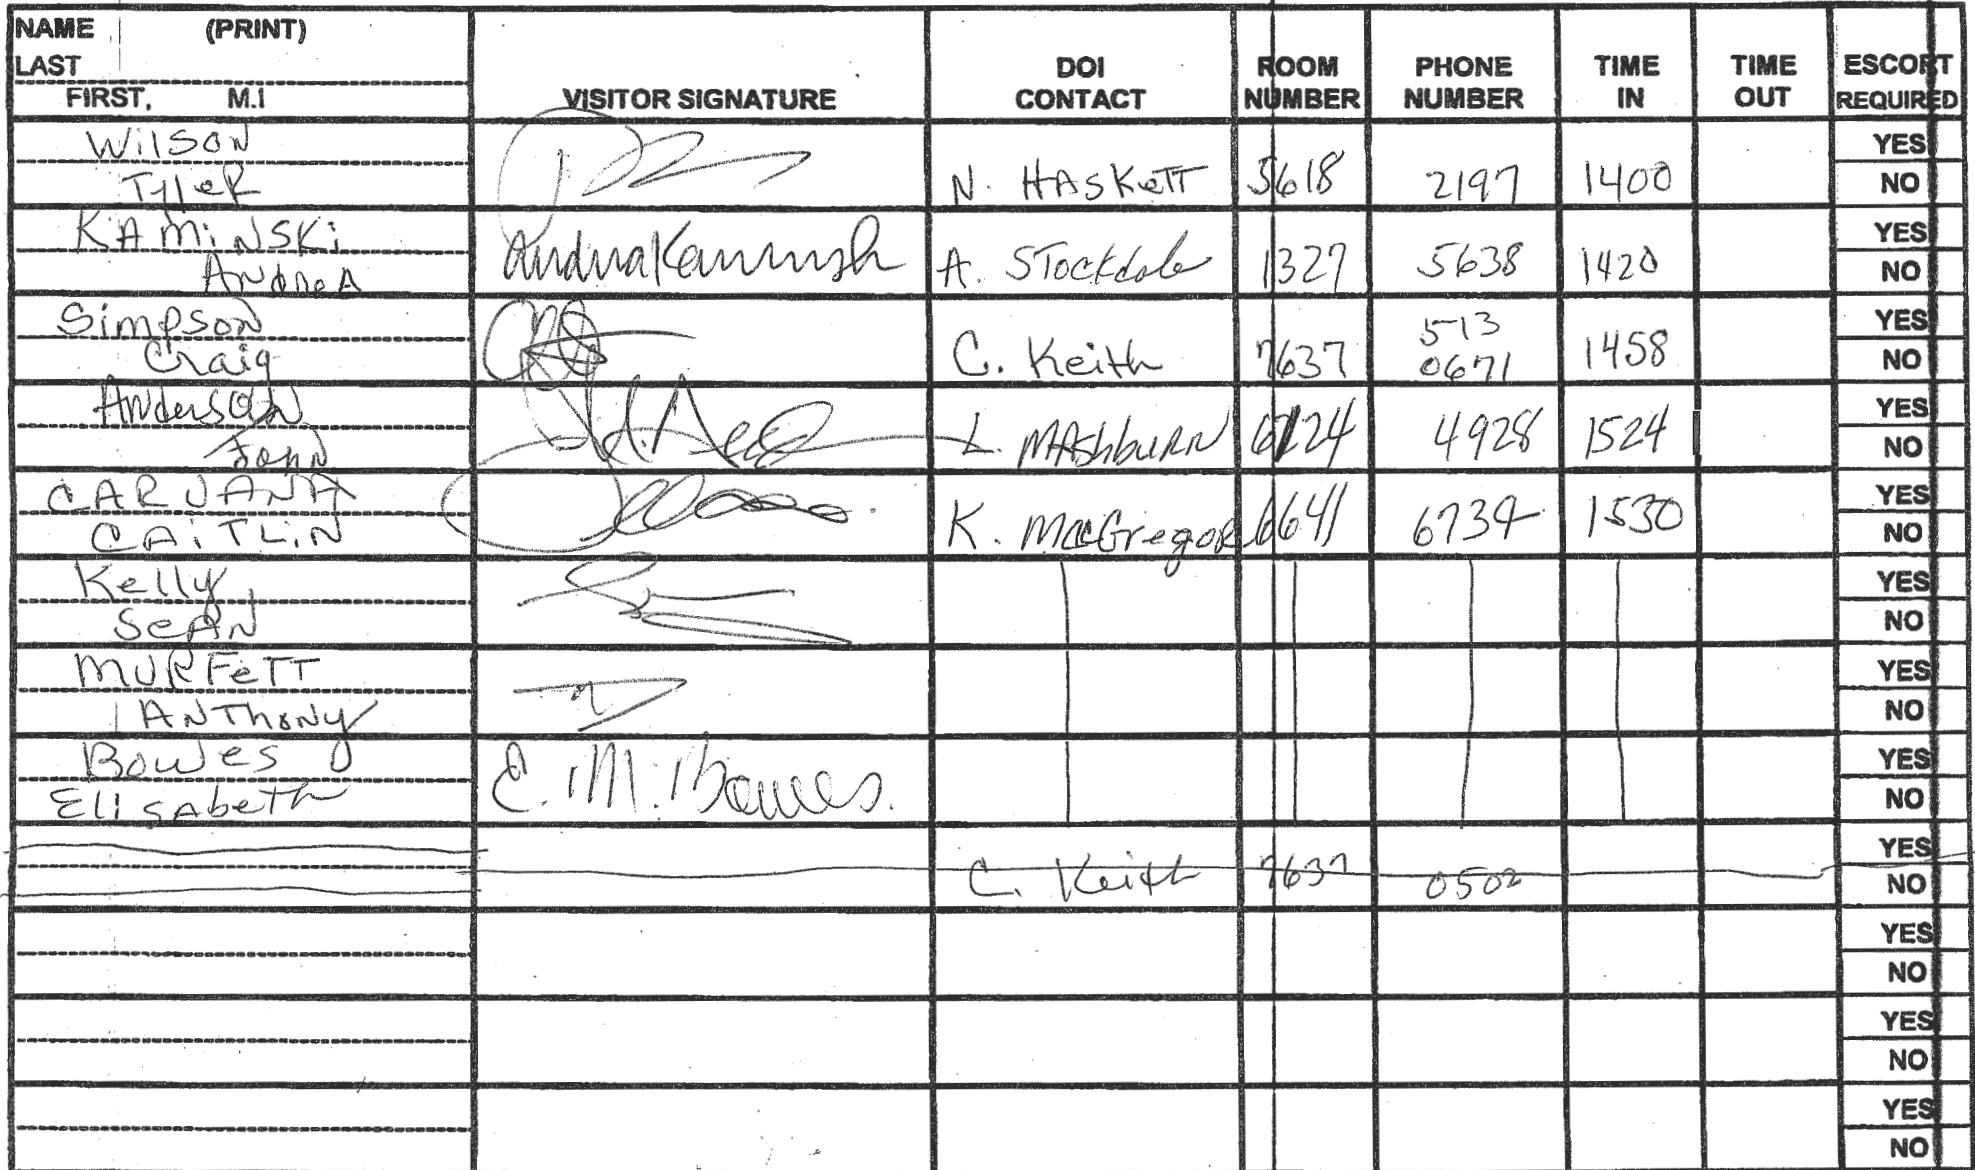 NAME (PRINT)
LAST
FIRST, M.I
VISITOR SIGNATURE
DOI CONTACT
ROOM NUMBER
PHONE NUMBER
TIME IN
TIME OUT
ESCORT REQUIRED
Wilson
Tyler
N. Haskett 5618 2197 1400
YES
NO
Kaminski
Andrea
Andrea Kaminski
A. Stockdale 1327 5638 1420
YES
NO
Simpson
Craig
C. Keith 7637 513 0671 1458
YES
NO
Anderson
John
L. Mashburn 4928 1524
YES
NO
CARUANA
CAITLIN
K. MacGregor 6641 6734 1530
YES
NO
Kelly
Sean
YES
NO
MURFETT
ANThony
YES
NO
Bowes
Elisabeth
E. M. Bowes.
YES
NO
C. Keith 7637 0502
YES
NO
YES
NO
YES
NO
YES
NO